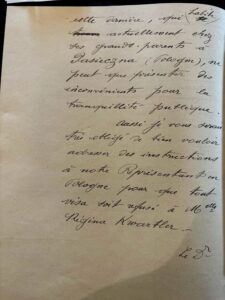 cette dernière, qui habite
actuellement chez
ses grands-parents à
Pasieczna (Pologne), ne
peut que présenter des
inconvénients pour la
tranquillité publique.
Aussi je vous serais
très obligé de bien vouloir
adresser des instructions
à notre Représentant en
Pologne pour que tout
visa soit refusé à Melle
Régina Kwartler.
Le Dr